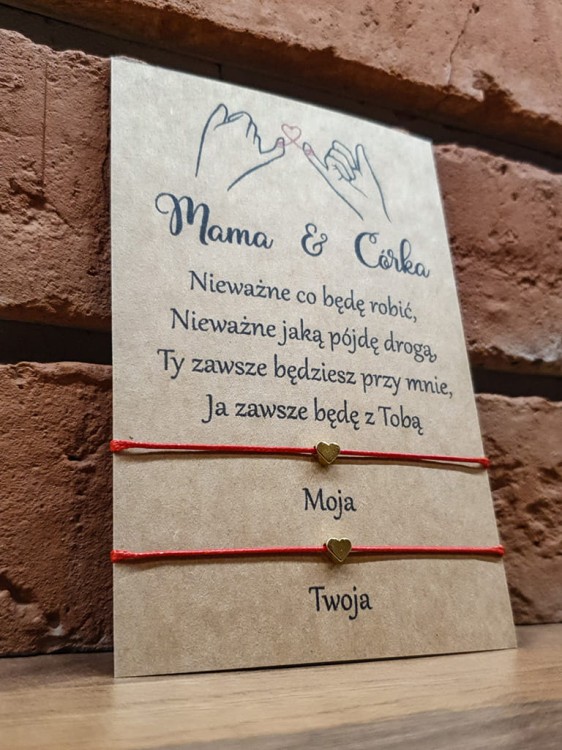 Mama & Córka
Nieważne co będę robić,
Nieważne jaką pójdę drogą,
Ty zawsze będziesz przy mnie,
Ja zawsze będę z Tobą
Moja
Twoja